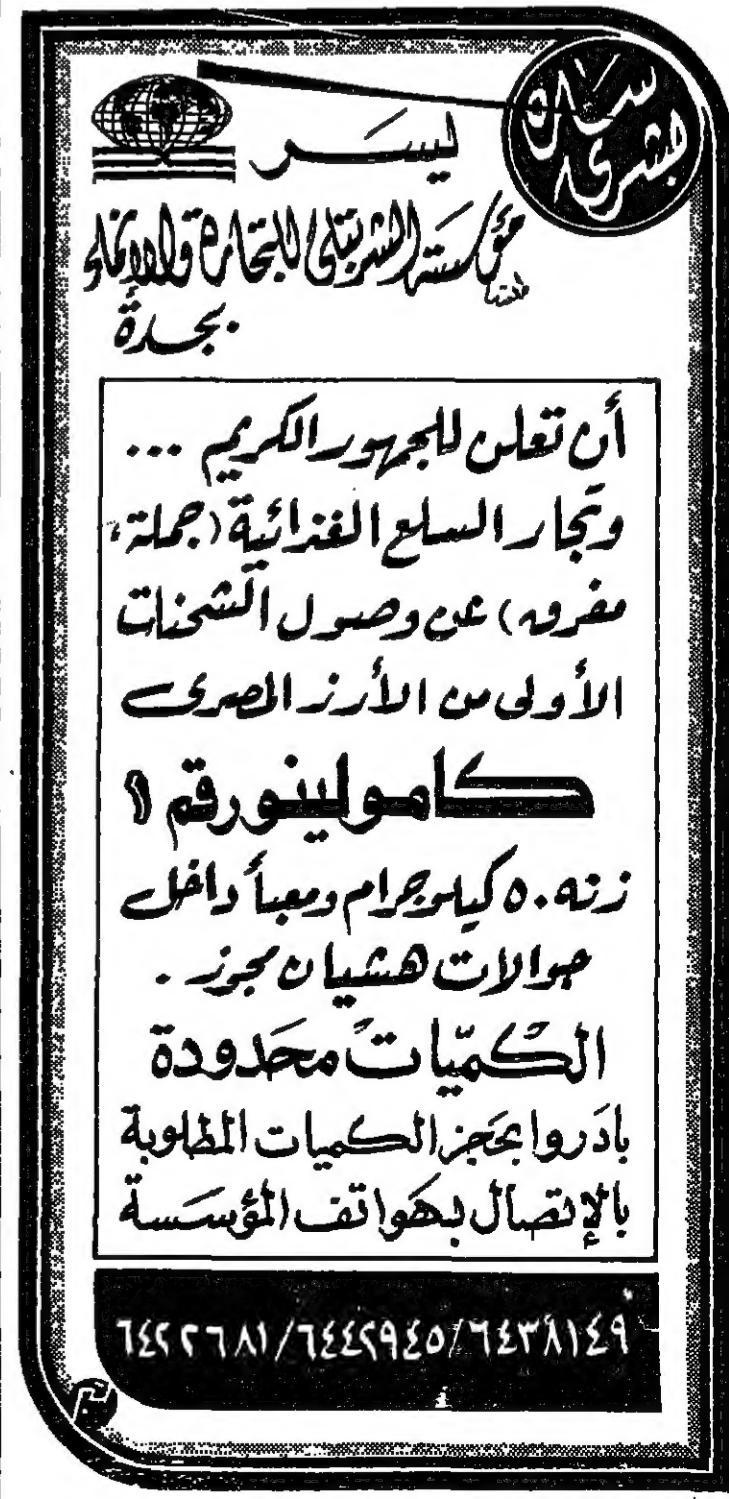 بشرى سارة
يسر
مؤسسة الشربتلي للتجارة والإنماء
بجدة
أن تعلن للجمهور الكريم ...
وتجار السلع الغذائية (جملة،
مفرق) عن وصول الشحنات
الأولى من الأرز المصري
كامولينو رقم ١
زنه ٥٠ كيلوجرام ومعبأ داخل
جوالات هشيان مجوز .
الكميّات محدودة
بادروا بحجز الكميات المطلوبة
بالإتصال بهواتف المؤسسة
٦٤٣٨١٤٩/٦٤٤٢٩٤٥/٦٤٢٢٦٨١